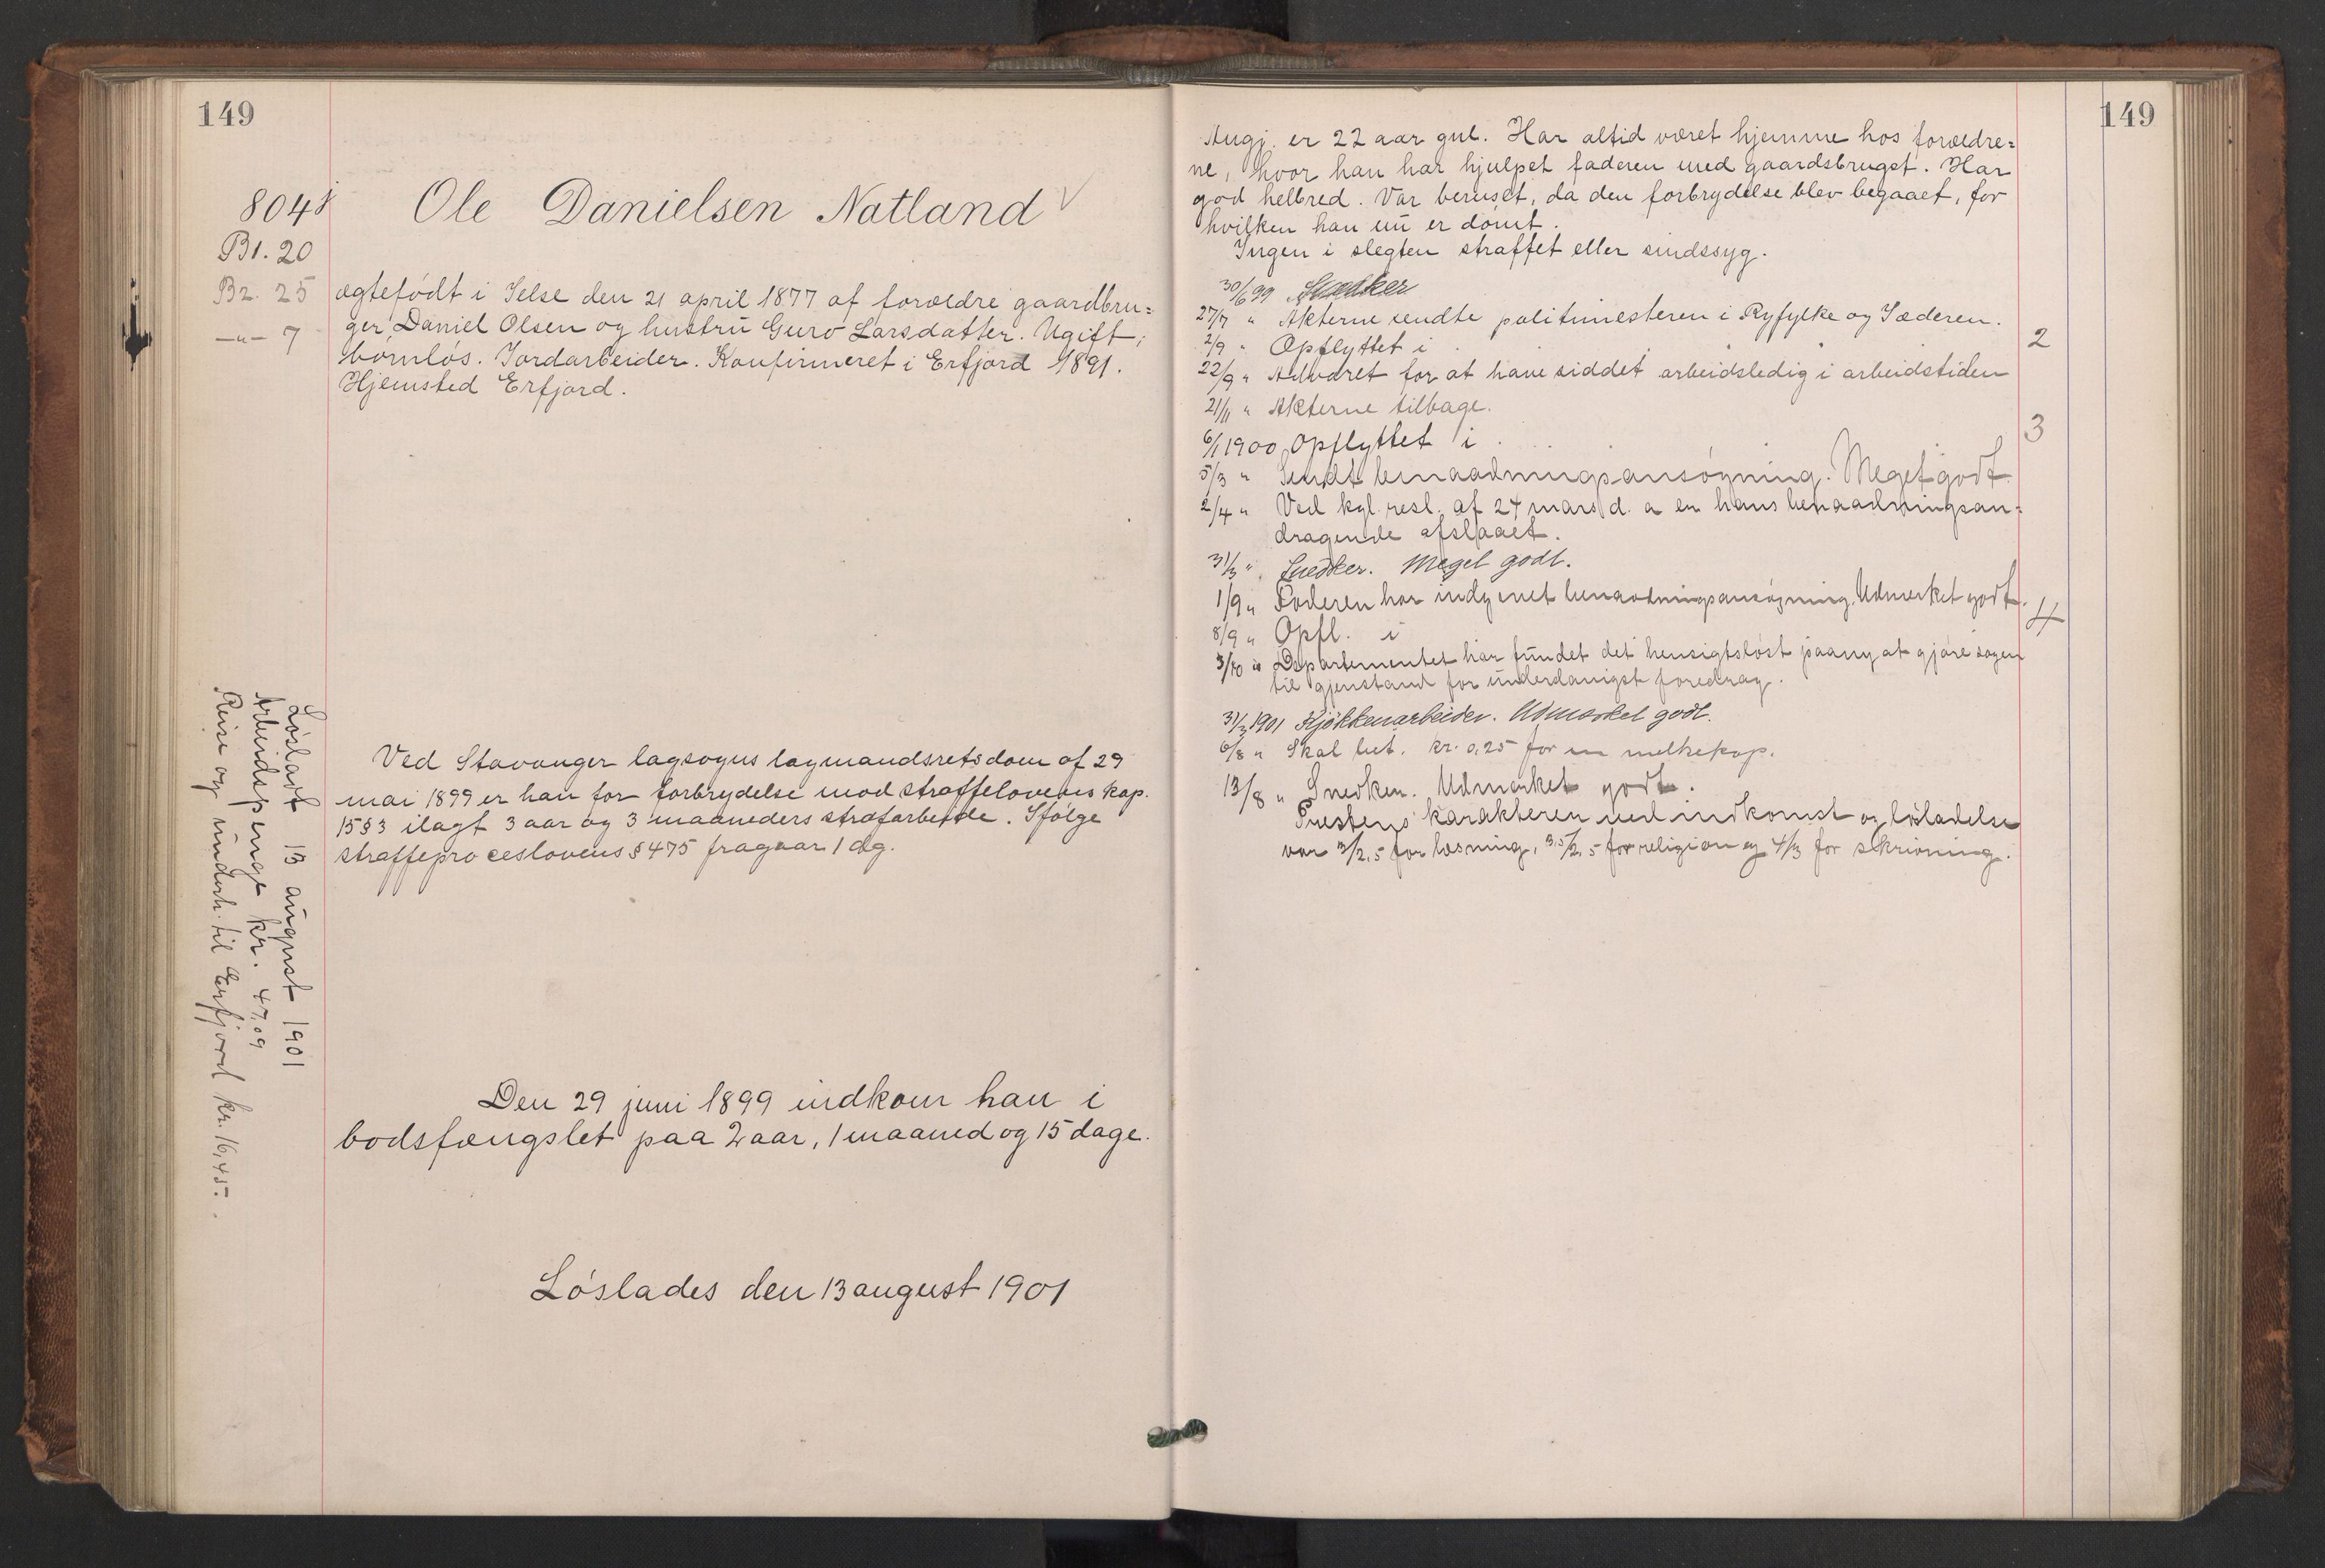 149
8048
Ole Danielsen Natland
B1. 20
B2. 25
—"— 7
ægtefødt i Jelse den 21 april 1877 af forældre gaardbru=
ger Daniel Olsen og hustru Guro Larsdatter. Ugift,
børnløs. Jordarbeider. Konfirmeret i Erfjord 1891.
Hjemsted Erfjord.
Ved Stavanger lagsogns lagmandsretsdom af 29
mai 1899 er han for forbrydelse mod straffelovens kap.
15 § 3 ilagt 3 aar og 3 maaneders strafarbeide. Ifølge
straffeproceslovens § 475 fragaar 1 dg.
Løsladt 13 august 1901
Arbeidspenge kr. 47,09
Reise og underh. til Erfjord kr. 16,45.
Den 29 juni 1899 indkom han i
bodsfængslet paa 2 aar, 1 maaned og 15 dage.
Løslades den 13 august 1901
149
Angj. er 22 aar gml. Har altid været hjemme hos forældre=
ne, hvor han har hjulpet faderen med gaardsbruget. Har
god helbred. Var beruset, da den forbrydelse blev begaaet, for
hvilken han nu er dømt.
Ingen i slegten straffet eller sindssyg.
30/6 99 Snedker
27/7 " Akterne sendte politimesteren i Ryfylke og Jæderen.
2/9 " Opflyttet i 2
22/9 " Advaret for at have siddet arbeidsledig i arbeidstiden
21/11 " Akterne tilbage.
6/1 1900 Opflyttet i 3
5/3 " Sendt benaadningsansøgning. Meget godt.
2/4 " Ved kgl. resl. af 24 mars d. a er hans benaadningsan=
dragende afslaaet.
31/3 " Snedker. Meget godt.
1/9 " Faderen har indgivet benaadningsansøgning. Udmerket godt.
8/9 " Opfl. i 4
3/10 " Departementet har fundet det hensigtsløst paany at gjøre sagen
til gjenstand for underdanigst foredrag.
31/3 1901 Kjøkkenarbeider. Udmærket godt.
6/8 " Skal bet. kr. 0,25 for en melkekop.
13/8 " Snedker. Udmærket godt.
Prestens karakterer ved indkomst og løsladelse
var 3/2,5 for læsning, 3,5/2,5 for religion og 4/3 for skrivning.